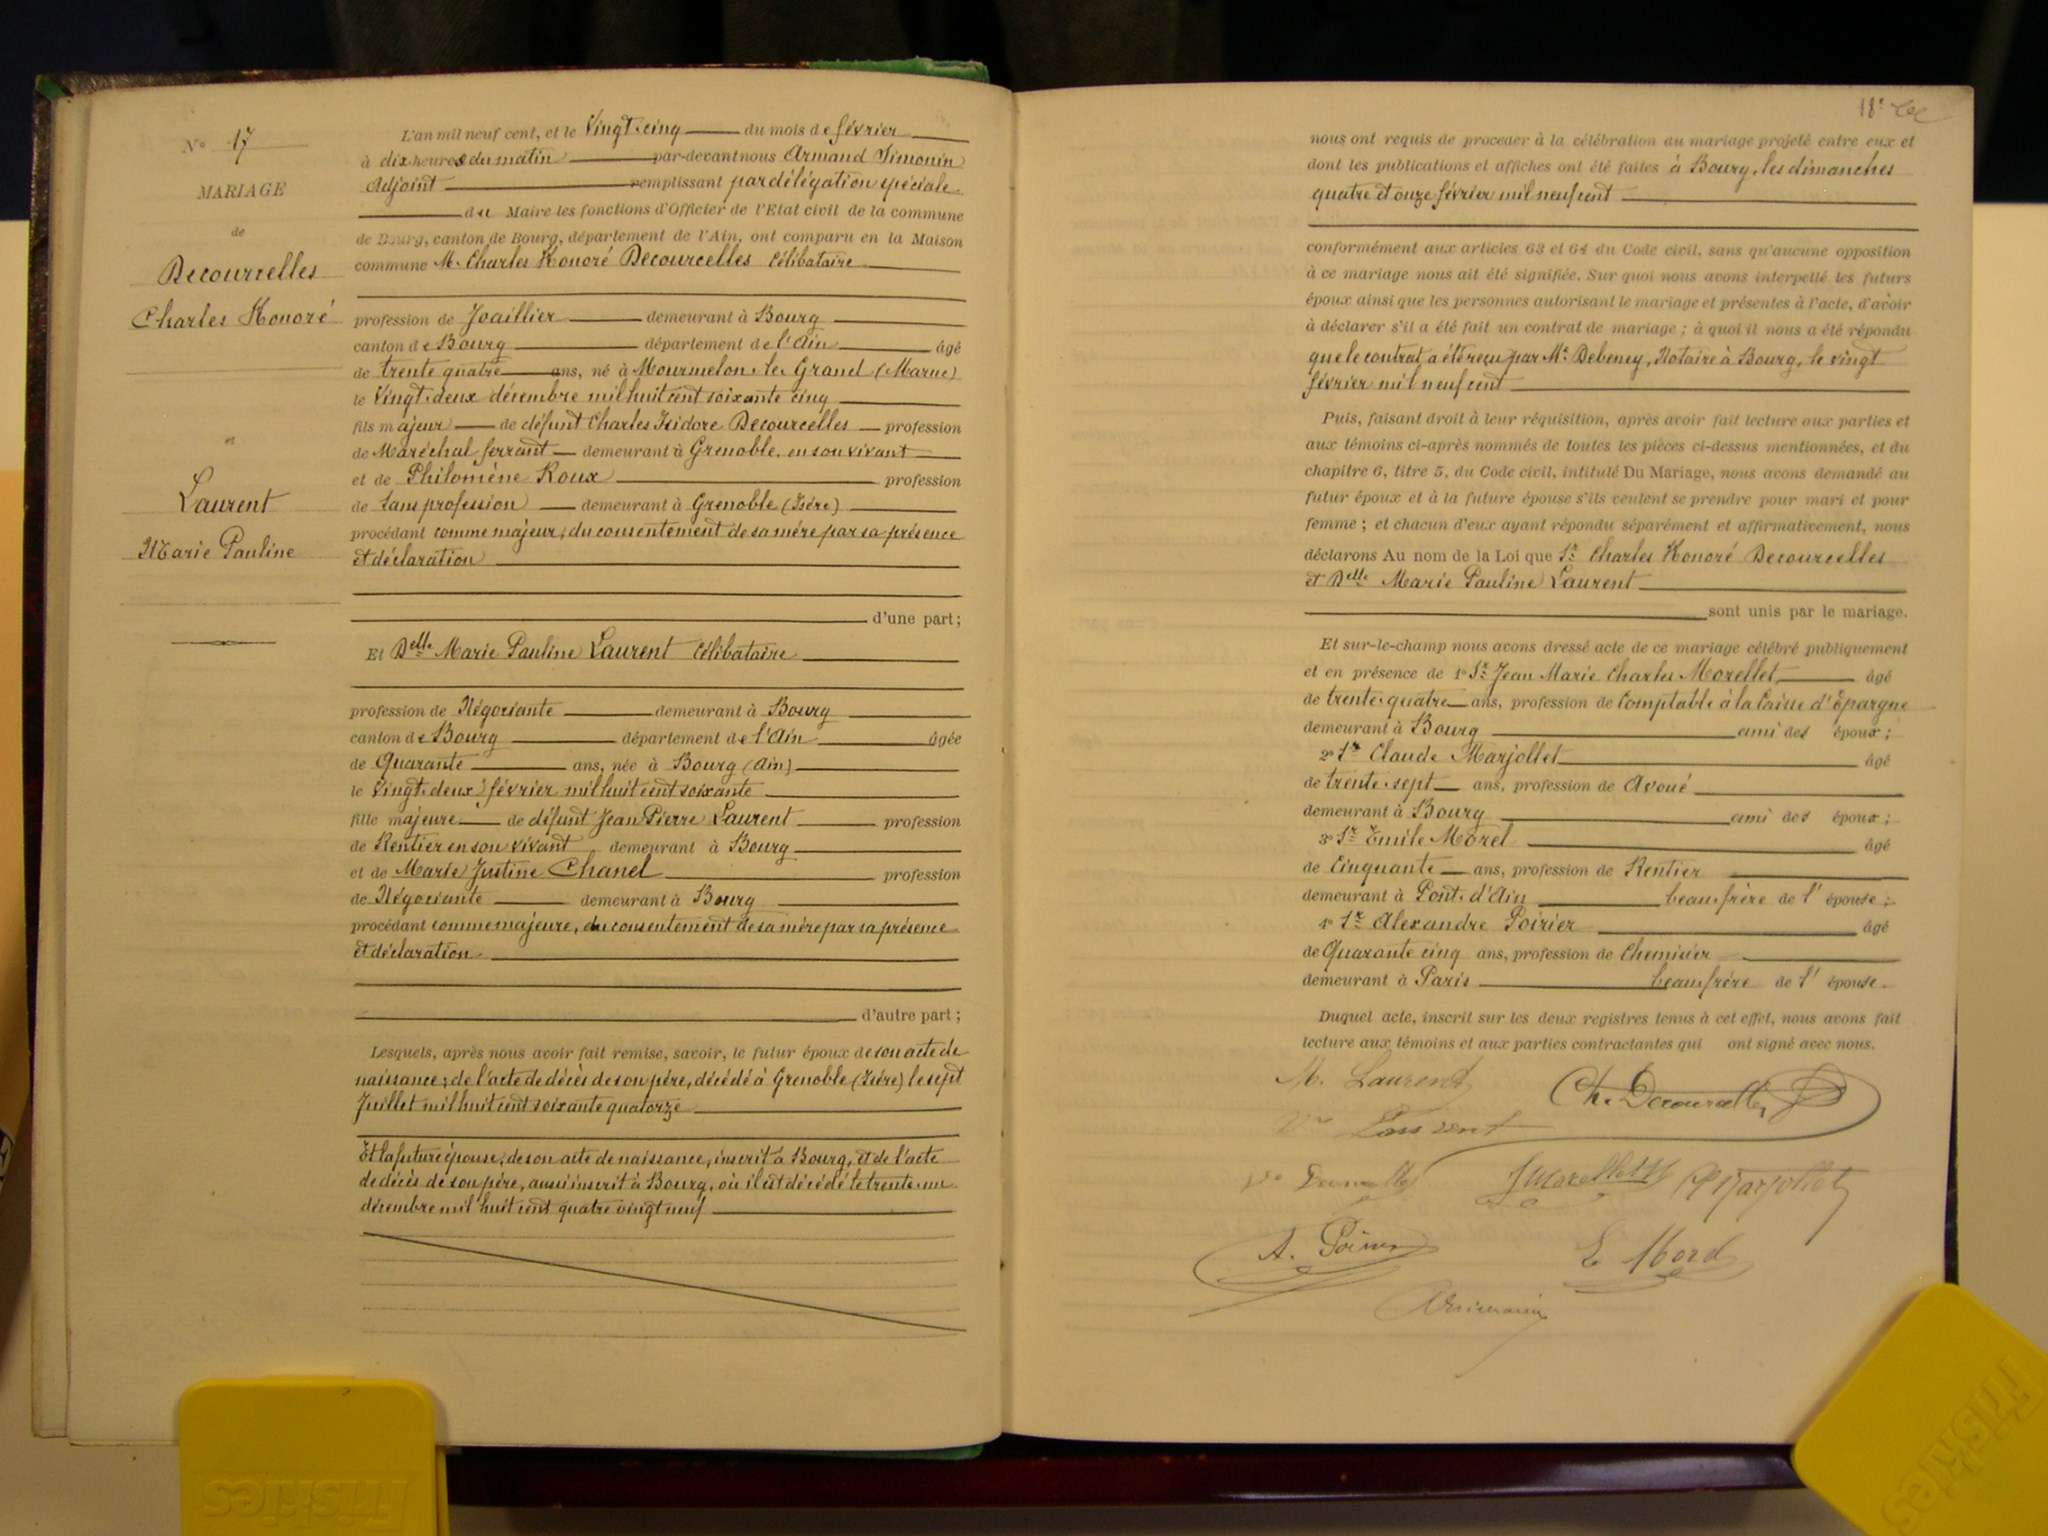 N° 17
MARIAGE
de
Decourcelles
Charles Honoré
et
Laurent
Marie Pauline
L'an mil neuf cent, et le Vingt-cinq du mois de février
à dix heures du matin par-devant nous Armand Simonin
Adjoint remplissant par délégation spéciale
du Maire les fonctions d'Officier de l'Etat civil de la commune
de Bourg, canton de Bourg, département de l'Ain, ont comparu en la Maison
commune M. Charles Honoré Decourcelles Célibataire
profession de Joaillier demeurant à Bourg
canton de Bourg département de l'Ain âgé
de trente quatre ans, né à Mourmelon-le-Grand (Marne)
le Vingt-deux décembre mil huit cent soixante cinq
fils majeur de défunt Charles Isidore Decourcelles profession
de Maréchal ferrant demeurant à Grenoble, en son vivant
et de Philomène Roux profession
de Sans profession demeurant à Grenoble (Isère)
procédant comme majeur, du consentement de sa mère par sa présence
et déclaration
d'une part;
Et Delle Marie Pauline Laurent Célibataire
profession de Négociante demeurant à Bourg
canton de Bourg département de l'Ain âgée
de Quarante ans, née à Bourg (Ain)
le Vingt-deux février mil huit cent soixante
fille majeure de défunt Jean Pierre Laurent profession
de Rentier en son vivant demeurant à Bourg
et de Marie Justine Chanel profession
de Négociante demeurant à Bourg
procédant comme majeure, du consentement de sa mère par sa présence
et déclaration
d'autre part;
Lesquels, après nous avoir fait remise, savoir, le futur époux de son acte de
naissance; de l'acte de décès de son père, décédé à Grenoble (Isère) le sept
Juillet mil huit cent soixante quatorze
Et la future épouse, de son acte de naissance, inscrit à Bourg, et de l'acte
de décès de son père, aussi inscrit à Bourg, où il est décédé le trente-un
décembre mil huit cent quatre vingt neuf
nous ont requis de procéder à la célébration au mariage projeté entre eux et
dont les publications et affiches ont été faites à Bourg, les dimanches
quatre et onze février mil neuf cent
conformément aux articles 63 et 64 du Code civil, sans qu'aucune opposition
à ce mariage nous ait été signifiée. Sur quoi nous avons interpellé les futurs
époux ainsi que les personnes autorisant le mariage et présentes à l'acte, d'avoir
à déclarer s'il a été fait un contrat de mariage; à quoi il nous a été répondu
que le contrat a été reçu par Me Debeney, Notaire à Bourg, le vingt
février mil neuf cent
Puis, faisant droit à leur réquisition, après avoir fait lecture aux parties et
aux témoins ci-après nommés de toutes les pièces ci-dessus mentionnées, et du
chapitre 6, titre 5, du Code civil, intitulé Du Mariage, nous avons demandé au
futur époux et à la future épouse s'ils veulent se prendre pour mari et pour
femme; et chacun d'eux ayant répondu séparément et affirmativement, nous
déclarons Au nom de la Loi que Sr Charles Honoré Decourcelles
et Delle Marie Pauline Laurent
sont unis par le mariage.
Et sur-le-champ nous avons dressé acte de ce mariage célébré publiquement
et en présence de 1° Sr Jean Marie Charles Morellet âgé
de trente-quatre ans, profession de Comptable à la Caisse d'Epargne
demeurant à Bourg ami des époux;
2° Sr Claude Marjollet âgé
de trente-sept ans, profession de Avoué
demeurant à Bourg ami des époux;
3° Sr Emile Morel âgé
de Cinquante ans, profession de Rentier
demeurant à Pont-d'Ain beau-frère de l'épouse;
4° Sr Alexandre Poirier âgé
de Quarante cinq ans, profession de Chemisier
demeurant à Paris beau-frère de l'épouse.
Duquel acte, inscrit sur les deux registres tenus à cet effet, nous avons fait
lecture aux témoins et aux parties contractantes qui ont signé avec nous.
M. Laurent Ch. Decourcelles
Ve Laurent
Morellet Marjollet
A. Poirier E Morel
ASimonin
friskies
friskies